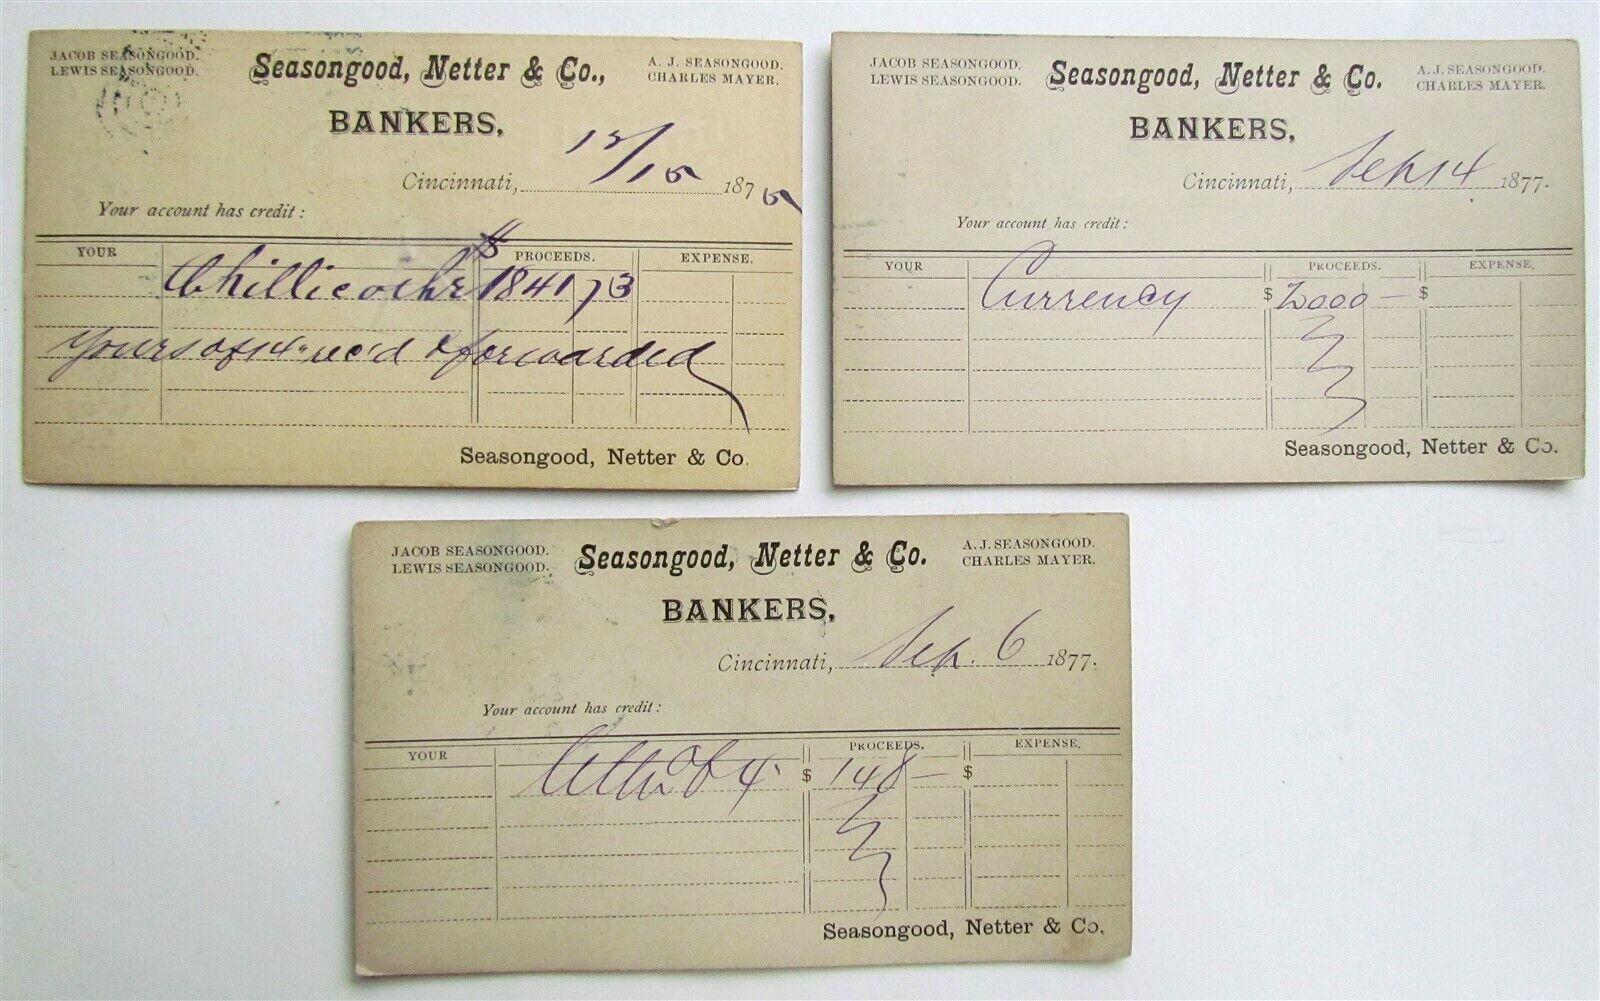 JACOB SEASONGOOD.
LEWIS SEASONGOOD.
Seasongood, Netter & Co.,
A. J. SEASONGOOD.
CHARLES MAYER.
BANKERS,
Cincinnati, 12/15 1875
Your account has credit:
YOUR PROCEEDS. EXPENSE.
Chillicothe $ 1841 73
Yours of 14" rec'd & forwarded
Seasongood, Netter & Co.
JACOB SEASONGOOD.
LEWIS SEASONGOOD.
Seasongood, Netter & Co.
A. J. SEASONGOOD.
CHARLES MAYER.
BANKERS,
Cincinnati, Sep 14 1877.
Your account has credit:
YOUR PROCEEDS. EXPENSE.
Currency $ 2000 — $
Seasongood, Netter & Co.
JACOB SEASONGOOD.
LEWIS SEASONGOOD.
Seasongood, Netter & Co.
A. J. SEASONGOOD.
CHARLES MAYER.
BANKERS,
Cincinnati, Sep. 6 1877.
Your account has credit:
YOUR PROCEEDS. EXPENSE.
of 4 $ 148 — $
Seasongood, Netter & Co.